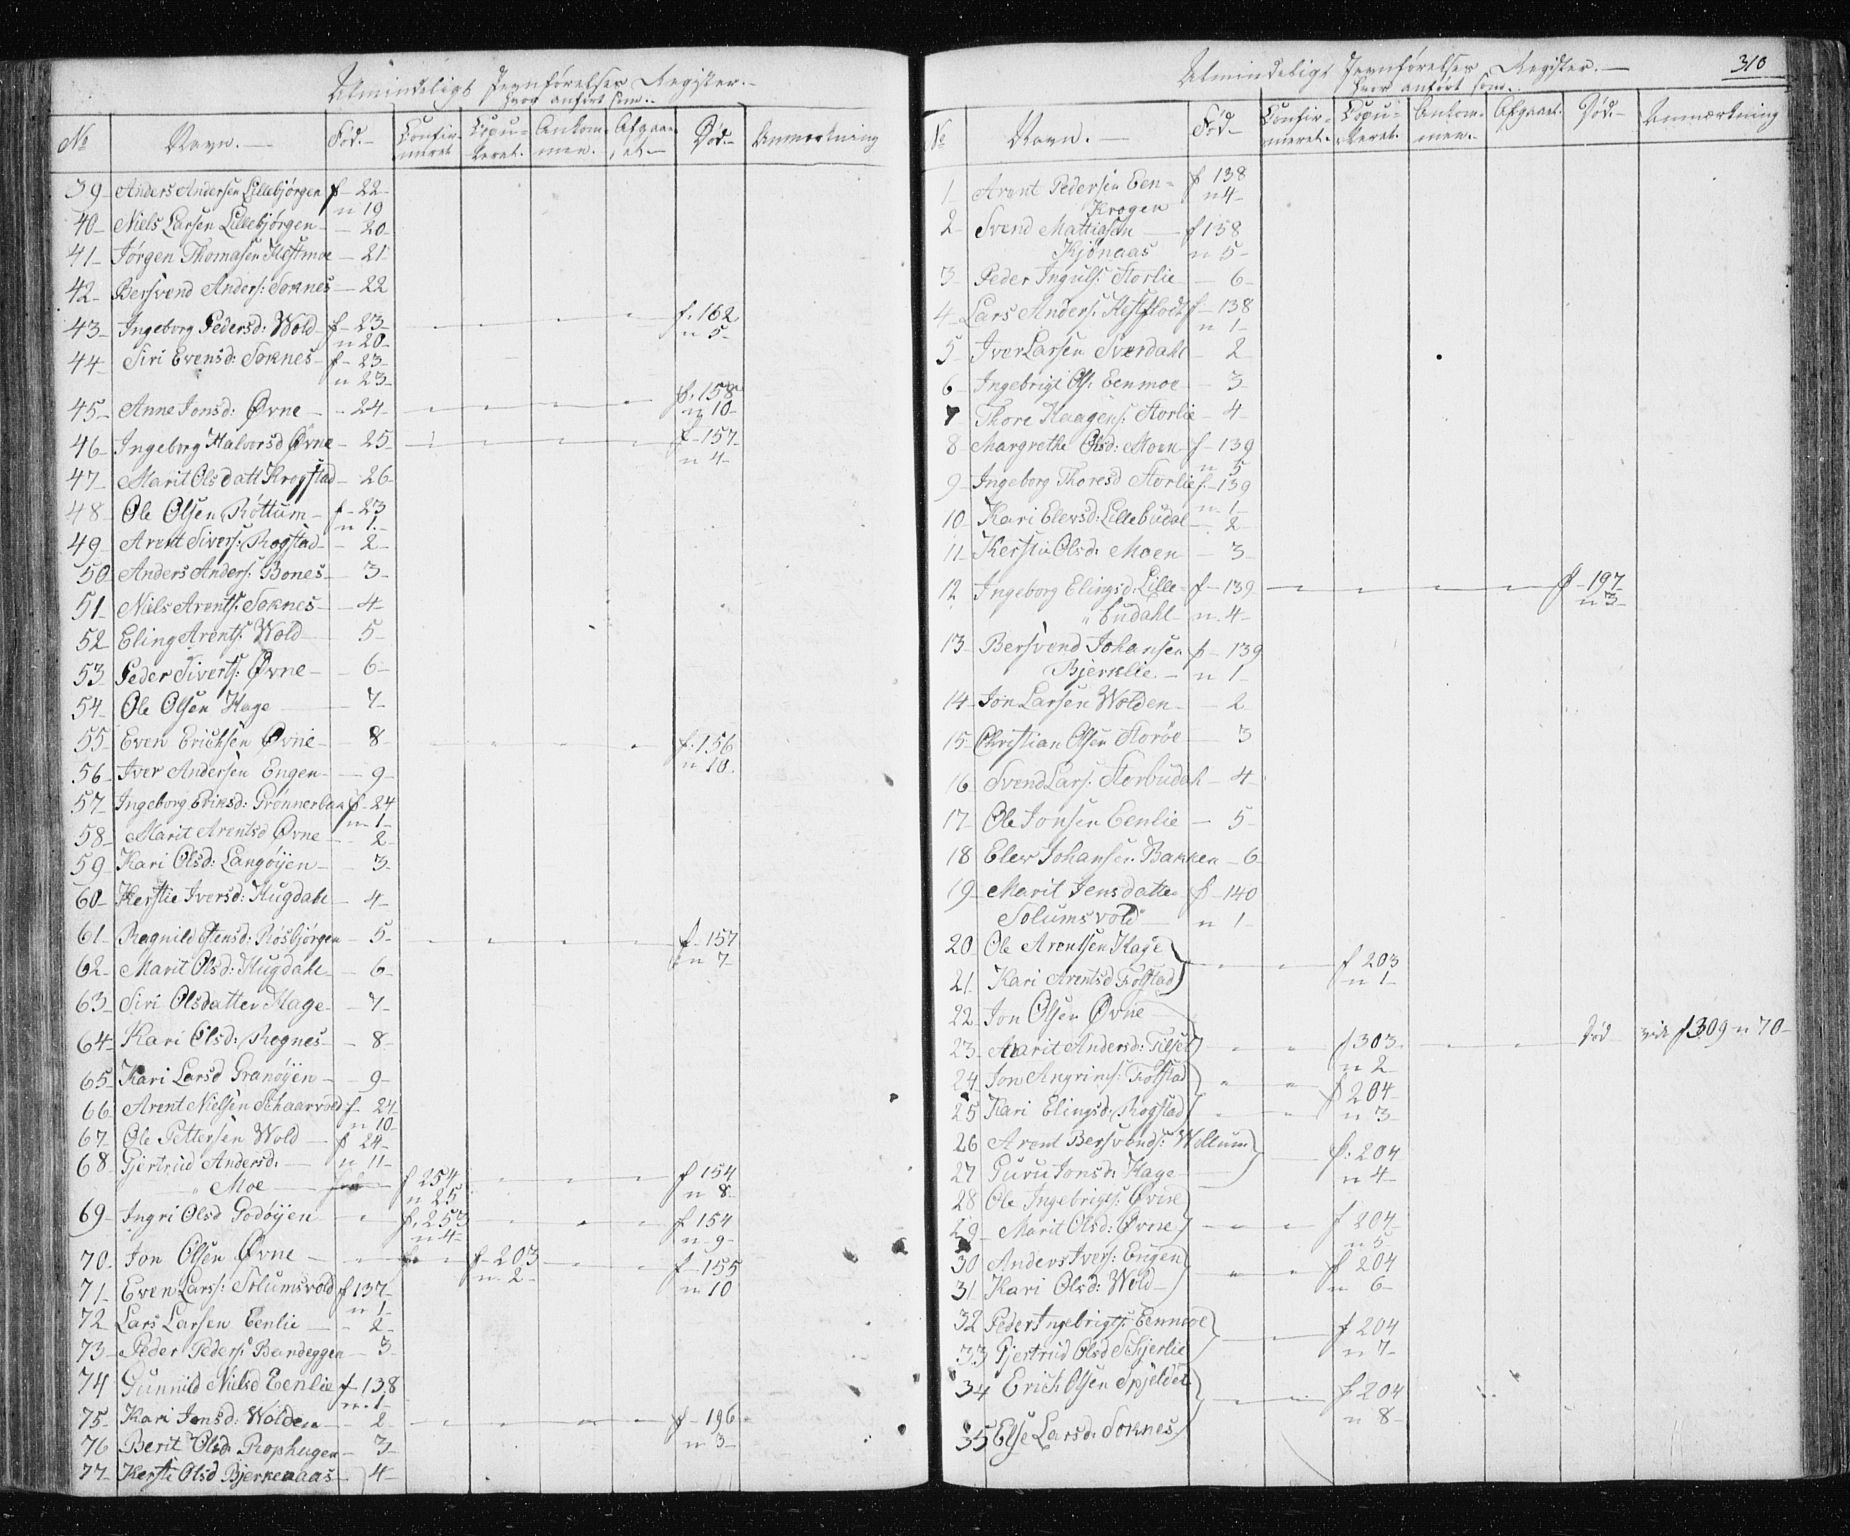 Almindeligt Jevnførelses Register.
hvor anført som.
No Navn. Fød. Confirmeret Copuleret. Ankommen. Afgaaet. Død. Anmærkning
39 Anders Andersen Lillebjørgen f 22 n 19
40 Niels Larsen Lillebjørgen - 20
41 Jørgen Thomasen Hestmoe - 21
42 Bersvend Anders: Soknes - 22
43 Ingeborg Pedersd: Wold f 23 n 20 f. 162 n 5
44 Siri Evensd: Soknes f 23 n 23
45 Anne Jonsd: Øvne - 24 f. 158 n 10
46 Ingeborg Halvorsd Øvne - 25 f 157 n 4
47 Marit Olsdatt Krogstad - 26
48 Ole Olsen Røttum f 23 n 1
49 Arent Sivers: Rogstad - 2
50 Anders Anders: Bones - 3
51 Niels Arents: Soknes - 4
52 Eling Arents: Wold 5
53 Peder Siverts: Øvne - 6
54 Ole Olsen Hage - 7
55 Even Erichsen Øvne - 8 f. 156 n 10.
56 Iver Andersen Engen - 9
57 Ingeborg Eriksd: Grønnerbak f 24 n 1
58 Marit Arentsd Øvne - 2
59 Kari Olsd: Langøyen - 3
60 Kerstie Iversd: Hugdahl - 4
61 Ragnild Estensd: Røsbjørgen - 5 f 157 n 7
62 Marit Olsd: Hugdahl - 6
63 Siri Olsdatter Hage - 7
64 Kari Olsd: Rognes - 8
65 Kari Larsd Granøyen - 9
66 Arent Nielsen Schaarvold f 24 n 10
67 Ole Pettersen Wold f 24 n 11
68 Gjertrud Andersd:
" Moe f 254 n 25 f 154 n 8
69 Ingri Olsd Godøyen f. 253 n 4 f 154 n 9
70 Jon Olsen Øvne f 203 n 2 f 155 n 10
71 Even Lars: Solumsvold f 137 n 1
72 Lars Larsen Eenlie - 2
73 Peder Peders: Bandeggen - 3
74 Gunnild Nielsd Eenlie f 138 n. 1
75 Kari Jonsd: Wolden - 2 f 196 n 3
76 Berit Olsd Rophugen - 3
77 Kersti Olsd Bjerkenaas - 4
Almindeligt Jevnførelses Register. 310
hvor anført som.
No Navn. Fød Confirmeret. Copuleret. Ankommen. Afgaaet. Død. Anmærkning
1 Arent Pedersen Een- f 138 n 4
Krogen
2 Svend Mattiasen f 158
Kjønaas n 5
3 Peder Ingulfs: Storlie - 6
4 Lars Anders: Hestflodt f 138 n 1
5 Iver Larsen Sverdahl - 2
6 Ingebrigt Ols: Eenmoe - 3
7 Thore Haagens: Storlie - 4
8 Margrethe Olsd: Moen f 139 n 5
9 Ingeborg Thoresd Storlie f. 139 n 1
10 Kari Elevsd: Lillebudal - 2
11 Kerstie Olsd: Moen - 3
12 Ingeborg Elingsd: Lille- f 139 f 197 n 3
" budahl n. 4
13 Bersvend Johansen f 139
Bjerklie n 1
14 Jon Larsen Wolden - 2
15 Christian Olsen Storøe - 3
16 Svend Lars: Storbudahl - 4
17 Ole Jonsen Eenlie - 5
18 Elev Johansen Bakken - 6
19 Marit Jensdatter f 140
Solumsvold n 1
20 Ole Arentsen Hage f 203
21 Kari Arentsd Folstad n 1
22 Jon Olsen Øvne
23 Marit Andersd: Tilset f 303 n 2 Død vide f 309 n 70
24 Jon Angrims: Folstad f 204
25 Kari Elingsd: Rogstad n 3
26 Arent Bersvends: Woltum f. 204
27 Guru Jonsd: Hage n 4
28 Ole Ingebrigts: Øvne
29 Marit Olsd: Øvne f 204 n 5
30 Anders Ivers: Engen f 204
31 Kari Olsd: Wold n 6
32 Peder Ingebrigts: Eenmoe f 204
33 Gjertrud Olsd Skjerlie n 7
34 Erich Olsen Spjeldet f 204 n 8
35 Else Larsd: Soknes